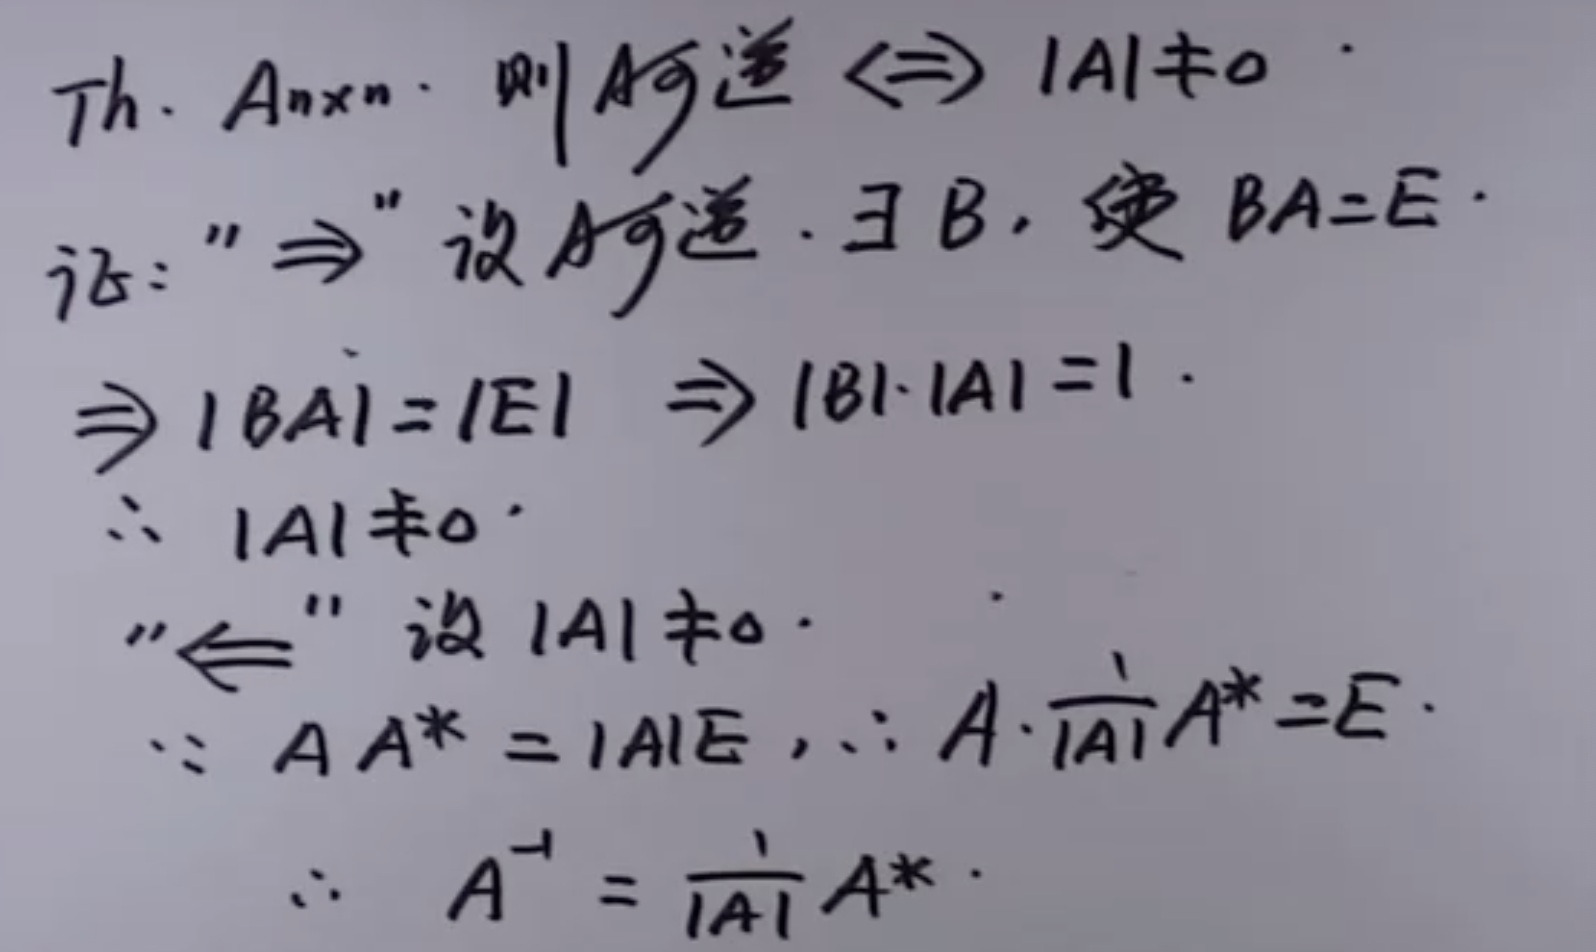 Th. Aₙₓₙ. 则A可逆 ⟺ |A|≠0.
证: "⇒" 设A可逆. ∃B, 使 BA=E.
⇒ |BA|=|E| ⇒ |B|·|A|=1.
∴ |A|≠0.
"⇐" 设 |A|≠0.
∵ AA* = |A|E, ∴ A·1/|A| A*=E.
∴ A⁻¹ = 1/|A| A*.